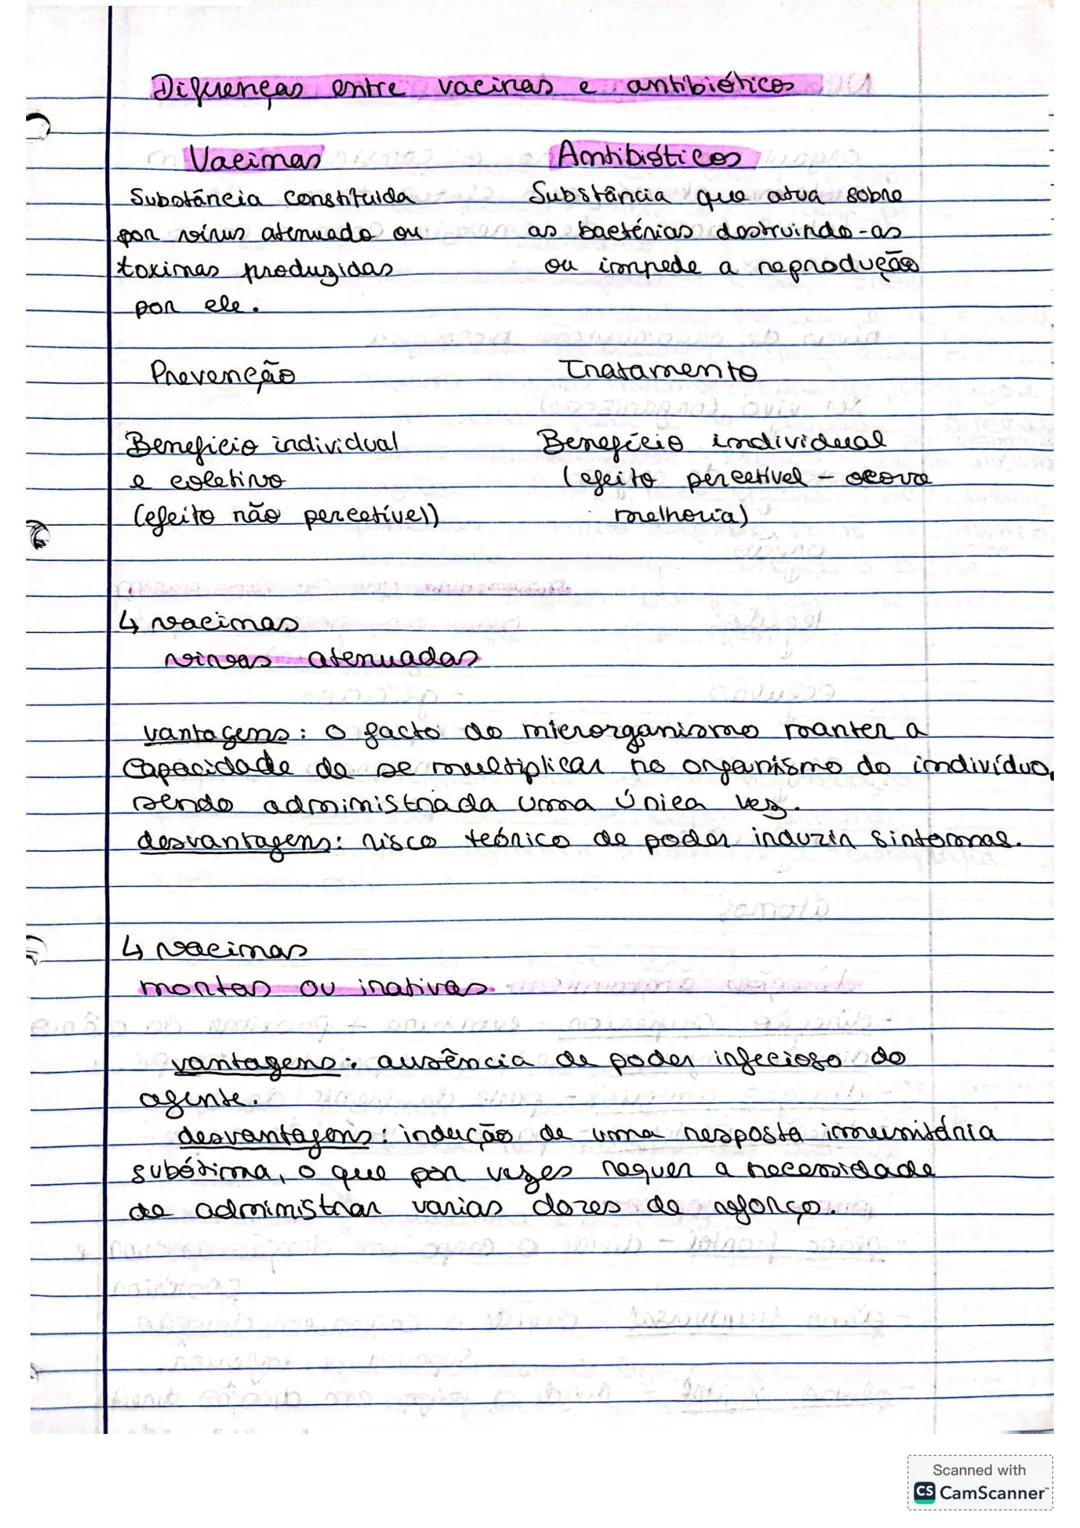 Diferenças entre vacinas e antibióticos
Vacinas
Substância constituida
por vírus atenuado ou
toxinas produzidas
por ele.
Prevenção
Beneficio individual
e coletivo
(efeito não percetível)
Antibióticos
Substância que atua sobre
as bactérias destruindo-as
ou impede a reprodução
Tratamento
Benefício individual
(efeito percetível - ocorre
melhoria)
↳ vacinas
vivas atenuadas
vantagens: o facto do microrganismo manter a
capacidade de se multiplicar no organismo do indivíduo,
sendo administrada uma única vez.
desvantagens: risco teórico de poder induzir sintomas.
↳ vacinas
mortas ou inativas.
vantagens: ausência de poder infecioso do
agente.
desvantagens: indução de uma resposta imunitária
subótima, o que por vezes requer a necessidade
de administrar varias dozes de reforço.
Scanned with
CS CamScanner